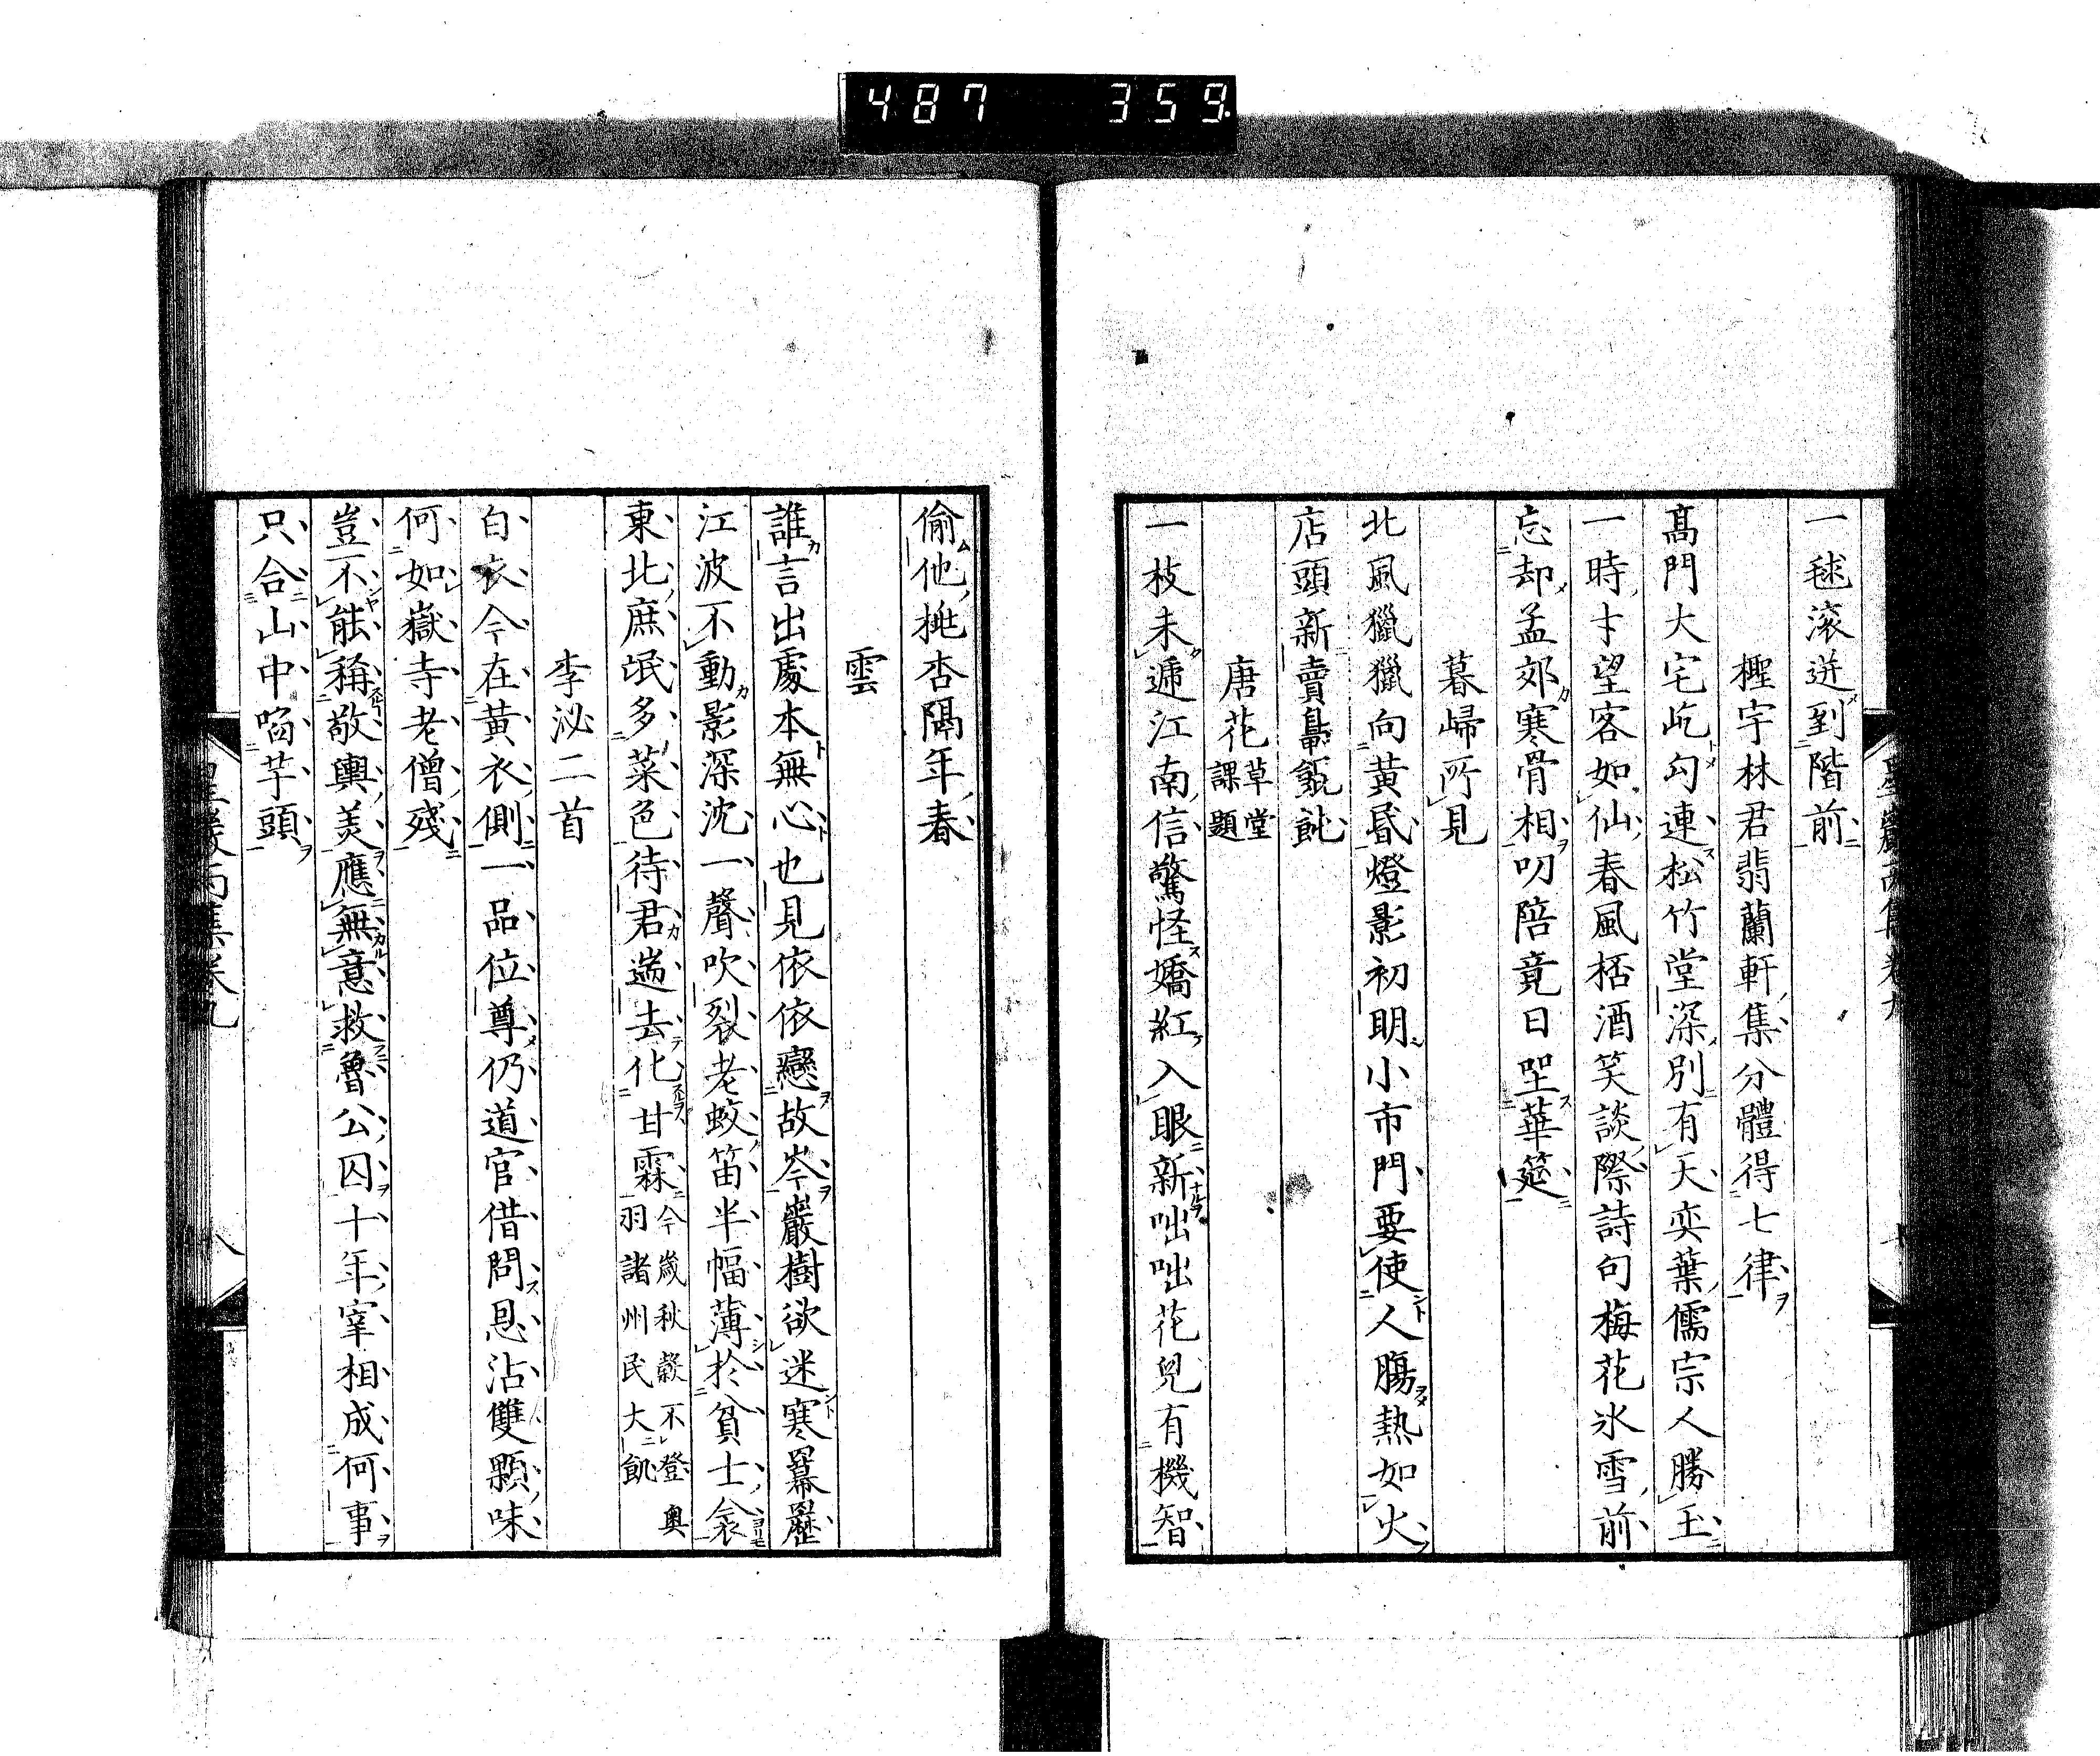 487 359
一毬滾迸到階前
檉宇林君翡蘭軒集分體得七律
高門大宅屹勾連松竹堂深別有天奕葉儒宗人勝玉
一時才望客如仙春風栝酒笑談際詩句梅花氷雪前
忘却孟郊寒骨相叨陪竟日坐華筵
暮歸所見
北風獵獵向黃昏燈影初明小市門要使人膓熱如火
店頭新賣鼻飩
唐花草堂課題
一枝未遞江南信驚怪嬌紅入眼新咄咄花兒有機智
偷他桃杏隔年春
雲
誰言出處本無心也見依依戀故岑巖樹欲迷寒羃歷
江波不動影深沈一聲吹裂老蛟笛半幅薄於貧士衾
東北庶氓多菜色待君遄去化甘霖今歲秋穀不登奧羽諸州民大飢
李泌二首
白衣今在黃衣側一品位尊仍道官借問恩沾雙顆味
何如嶽寺老僧殘
豈不能稱敬輿羙應無意救魯公囚十年宰相成何事
只合山中啗芋頭
八